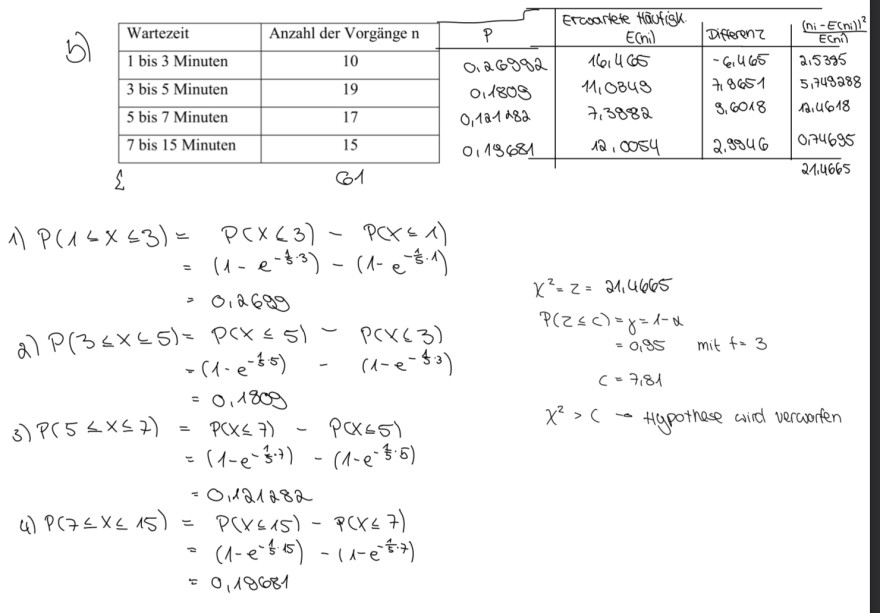 b)
Wartezeit | Anzahl der Vorgänge n | P | Erwartete Häufigk. E(ni) | Differenz | (ni - E(ni))² / E(ni)
1 bis 3 Minuten | 10 | 0,26992 | 16,465 | -6,465 | 2,5395
3 bis 5 Minuten | 19 | 0,1809 | 11,0349 | 7,9651 | 5,749288
5 bis 7 Minuten | 17 | 0,121282 | 7,3982 | 9,6018 | 12,4618
7 bis 15 Minuten | 15 | 0,19681 | 12,0054 | 2,9946 | 0,74695
Σ 61 21,4665
1) P(1 ≤ X ≤ 3) = P(X ≤ 3) - P(X ≤ 1)
= (1 - e^{-1/5·3}) - (1 - e^{-1/5·1})
= 0,2699
2) P(3 ≤ X ≤ 5) = P(X ≤ 5) - P(X ≤ 3)
= (1 - e^{-1/5·5}) - (1 - e^{-1/5·3})
= 0,1809
3) P(5 ≤ X ≤ 7) = P(X ≤ 7) - P(X ≤ 5)
= (1 - e^{-1/5·7}) - (1 - e^{-1/5·5})
= 0,121282
4) P(7 ≤ X ≤ 15) = P(X ≤ 15) - P(X ≤ 7)
= (1 - e^{-1/5·15}) - (1 - e^{-1/5·7})
= 0,19681
χ² = z = 21,4665
P(Z ≤ c) = γ = 1 - α
= 0,95 mit f = 3
c = 7,81
χ² > c → Hypothese wird verworfen